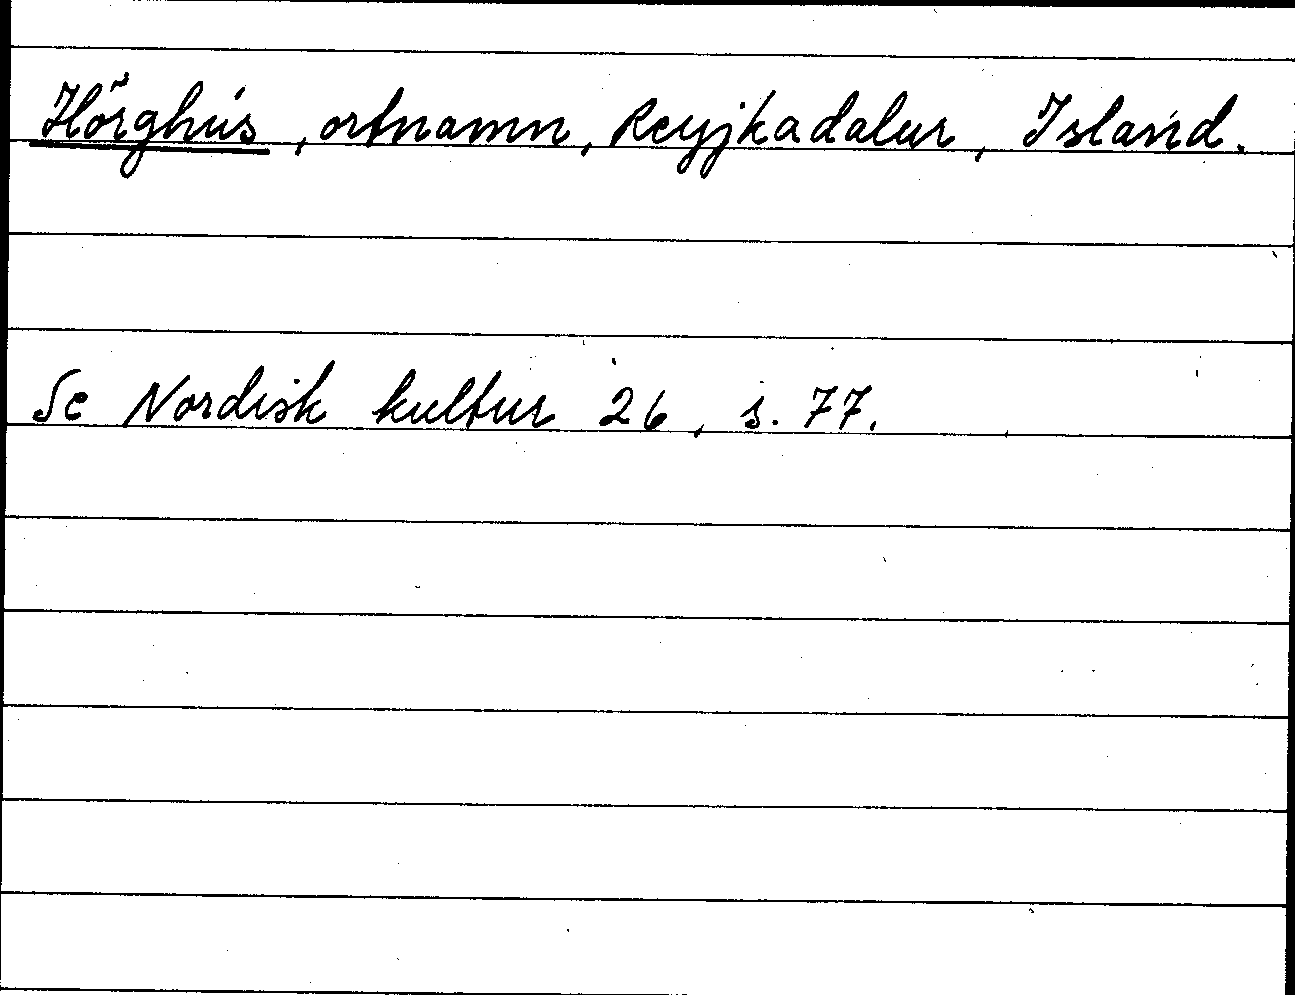 Hörghús, ortnamn, Reyjkadalur, Island.
Se Nordisk kultur 26, s. 77.